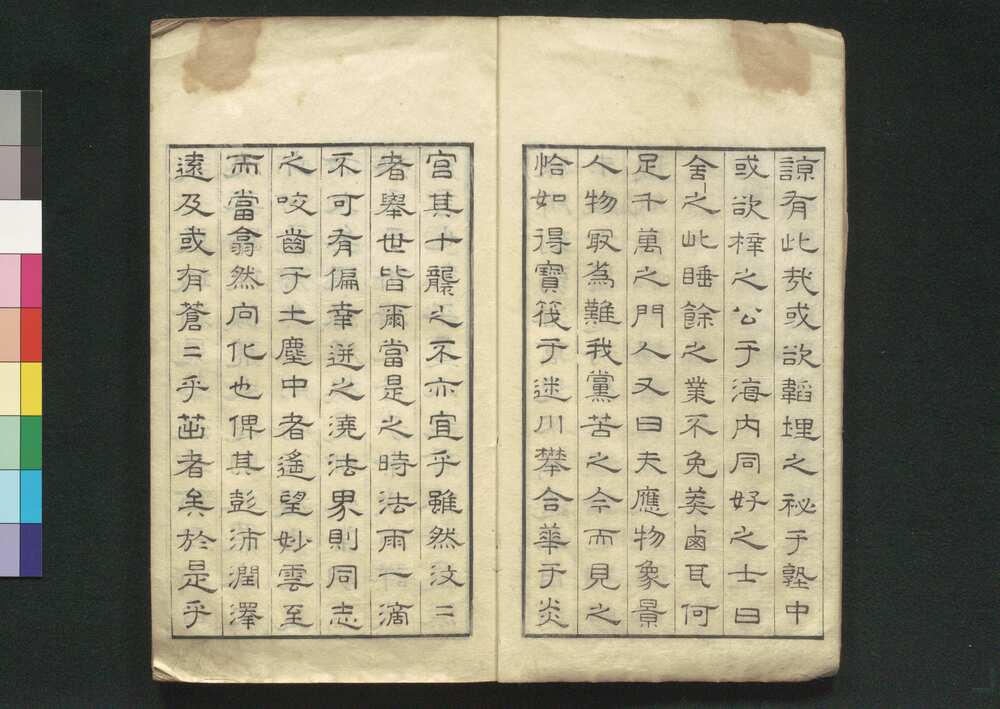 諒有此哉或欲韜埋之祕于塾中
或欲梓之公于海内同好之士曰
舍之此睡餘之業不免莽鹵耳何
足千萬之門人又曰夫應物象景
人物㝡為難我黨苦之今而見之
恰如得寶筏于迷川攀合華于炎
宮其十襲之不亦宜乎雖然汶二
者舉世皆爾當是之時法雨一滴
不可有偏幸迸之澆法界則同志
之咬齒于土塵中者遙望妙雲至
而當翕然向化也俾其彭沛潤澤
遠及或有蒼二乎茁者矣於是乎